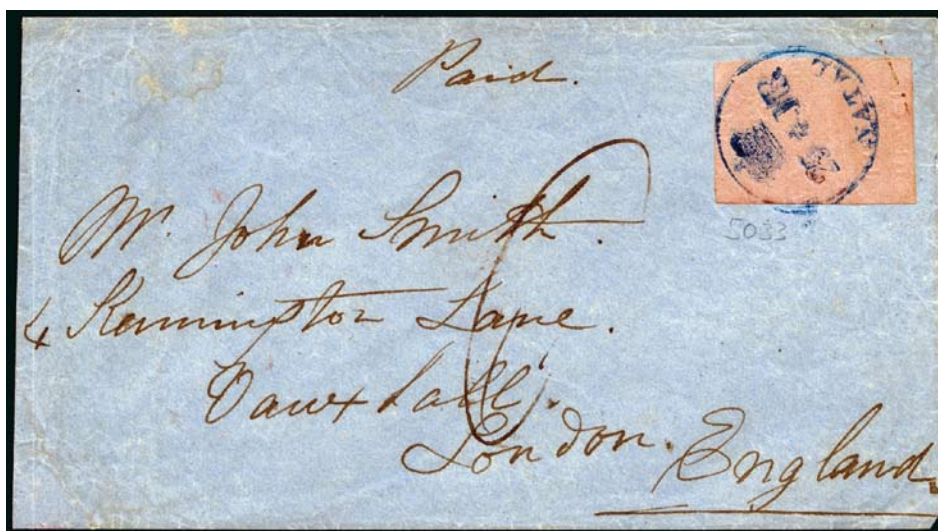 Paid.
NATAL
5033
Mr. John Smith.
4 Kennington Lane.
Vauxhall.
London. England.